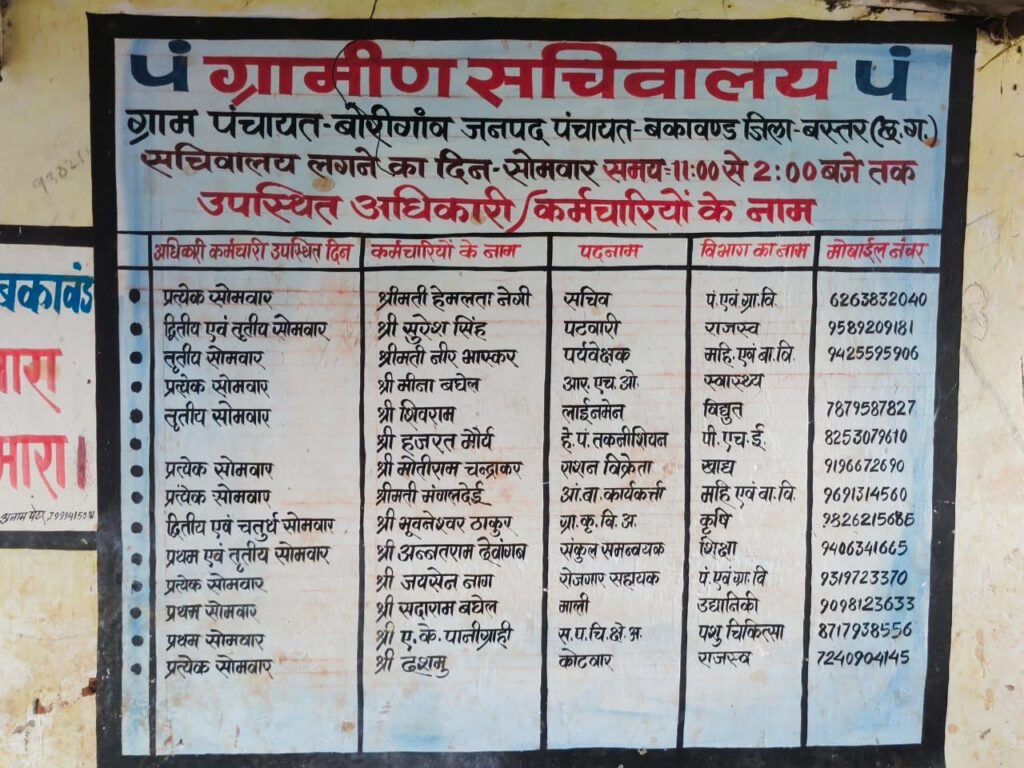 पं ग्रामीण सचिवालय पं
ग्राम पंचायत-बोरीगांव जनपद पंचायत-बकावण्ड जिला-बस्तर (छ.ग.)
सचिवालय लगने का दिन-सोमवार समय:11:00 से 2:00 बजे तक
उपस्थित अधिकारी/कर्मचारियों के नाम
अधिकारी कर्मचारी उपस्थित दिन कर्मचारियों के नाम पदनाम विभाग का नाम मोबाईल नंबर
प्रत्येक सोमवार श्रीमती हेमलता नेगी सचिव पं.एवं ग्रा.वि. 6263832040
द्वितीय एवं तृतीय सोमवार श्री सुरेश सिंह पटवारी राजस्व 9589209181
तृतीय सोमवार श्रीमती नीर भास्कर पर्यवेक्षक महि.एवं बा.वि. 9425595906
प्रत्येक सोमवार श्री मीना बघेल आर.एच.ओ. स्वास्थ्य
तृतीय सोमवार श्री शिवराम लाईनमेन विद्युत 7879587827
श्री हजरत मौर्य हे.पं.तकनीशियन पी.एच.ई. 8253079610
प्रत्येक सोमवार श्री मोतीराम चन्द्राकर राशन विक्रेता खाद्य 9196672690
प्रत्येक सोमवार श्रीमती मंगलदेई आं.बा.कार्यकर्त्ता महि एवं बा.वि. 9691314560
द्वितीय एवं चतुर्थ सोमवार श्री भूवनेश्वर ठाकुर ग्रा.कृ.वि.अ. कृषि 9826215685
प्रथम एवं तृतीय सोमवार श्री अन्नतराम देवांगन संकुल समन्वयक शिक्षा 9406341665
प्रत्येक सोमवार श्री जयसेन नाग रोजगार सहायक पं.एवं ग्रा.वि 9319723370
प्रथम सोमवार श्री सदाराम बघेल माली उद्यानिकी 9098123633
प्रथम सोमवार श्री ए.के.पानीग्राही स.प.चि.क्षे.अ. पशु चिकित्सा 8717938556
प्रत्येक सोमवार श्री दशमु कोटवार राजस्व 7240904145
बकावंड
मारा।